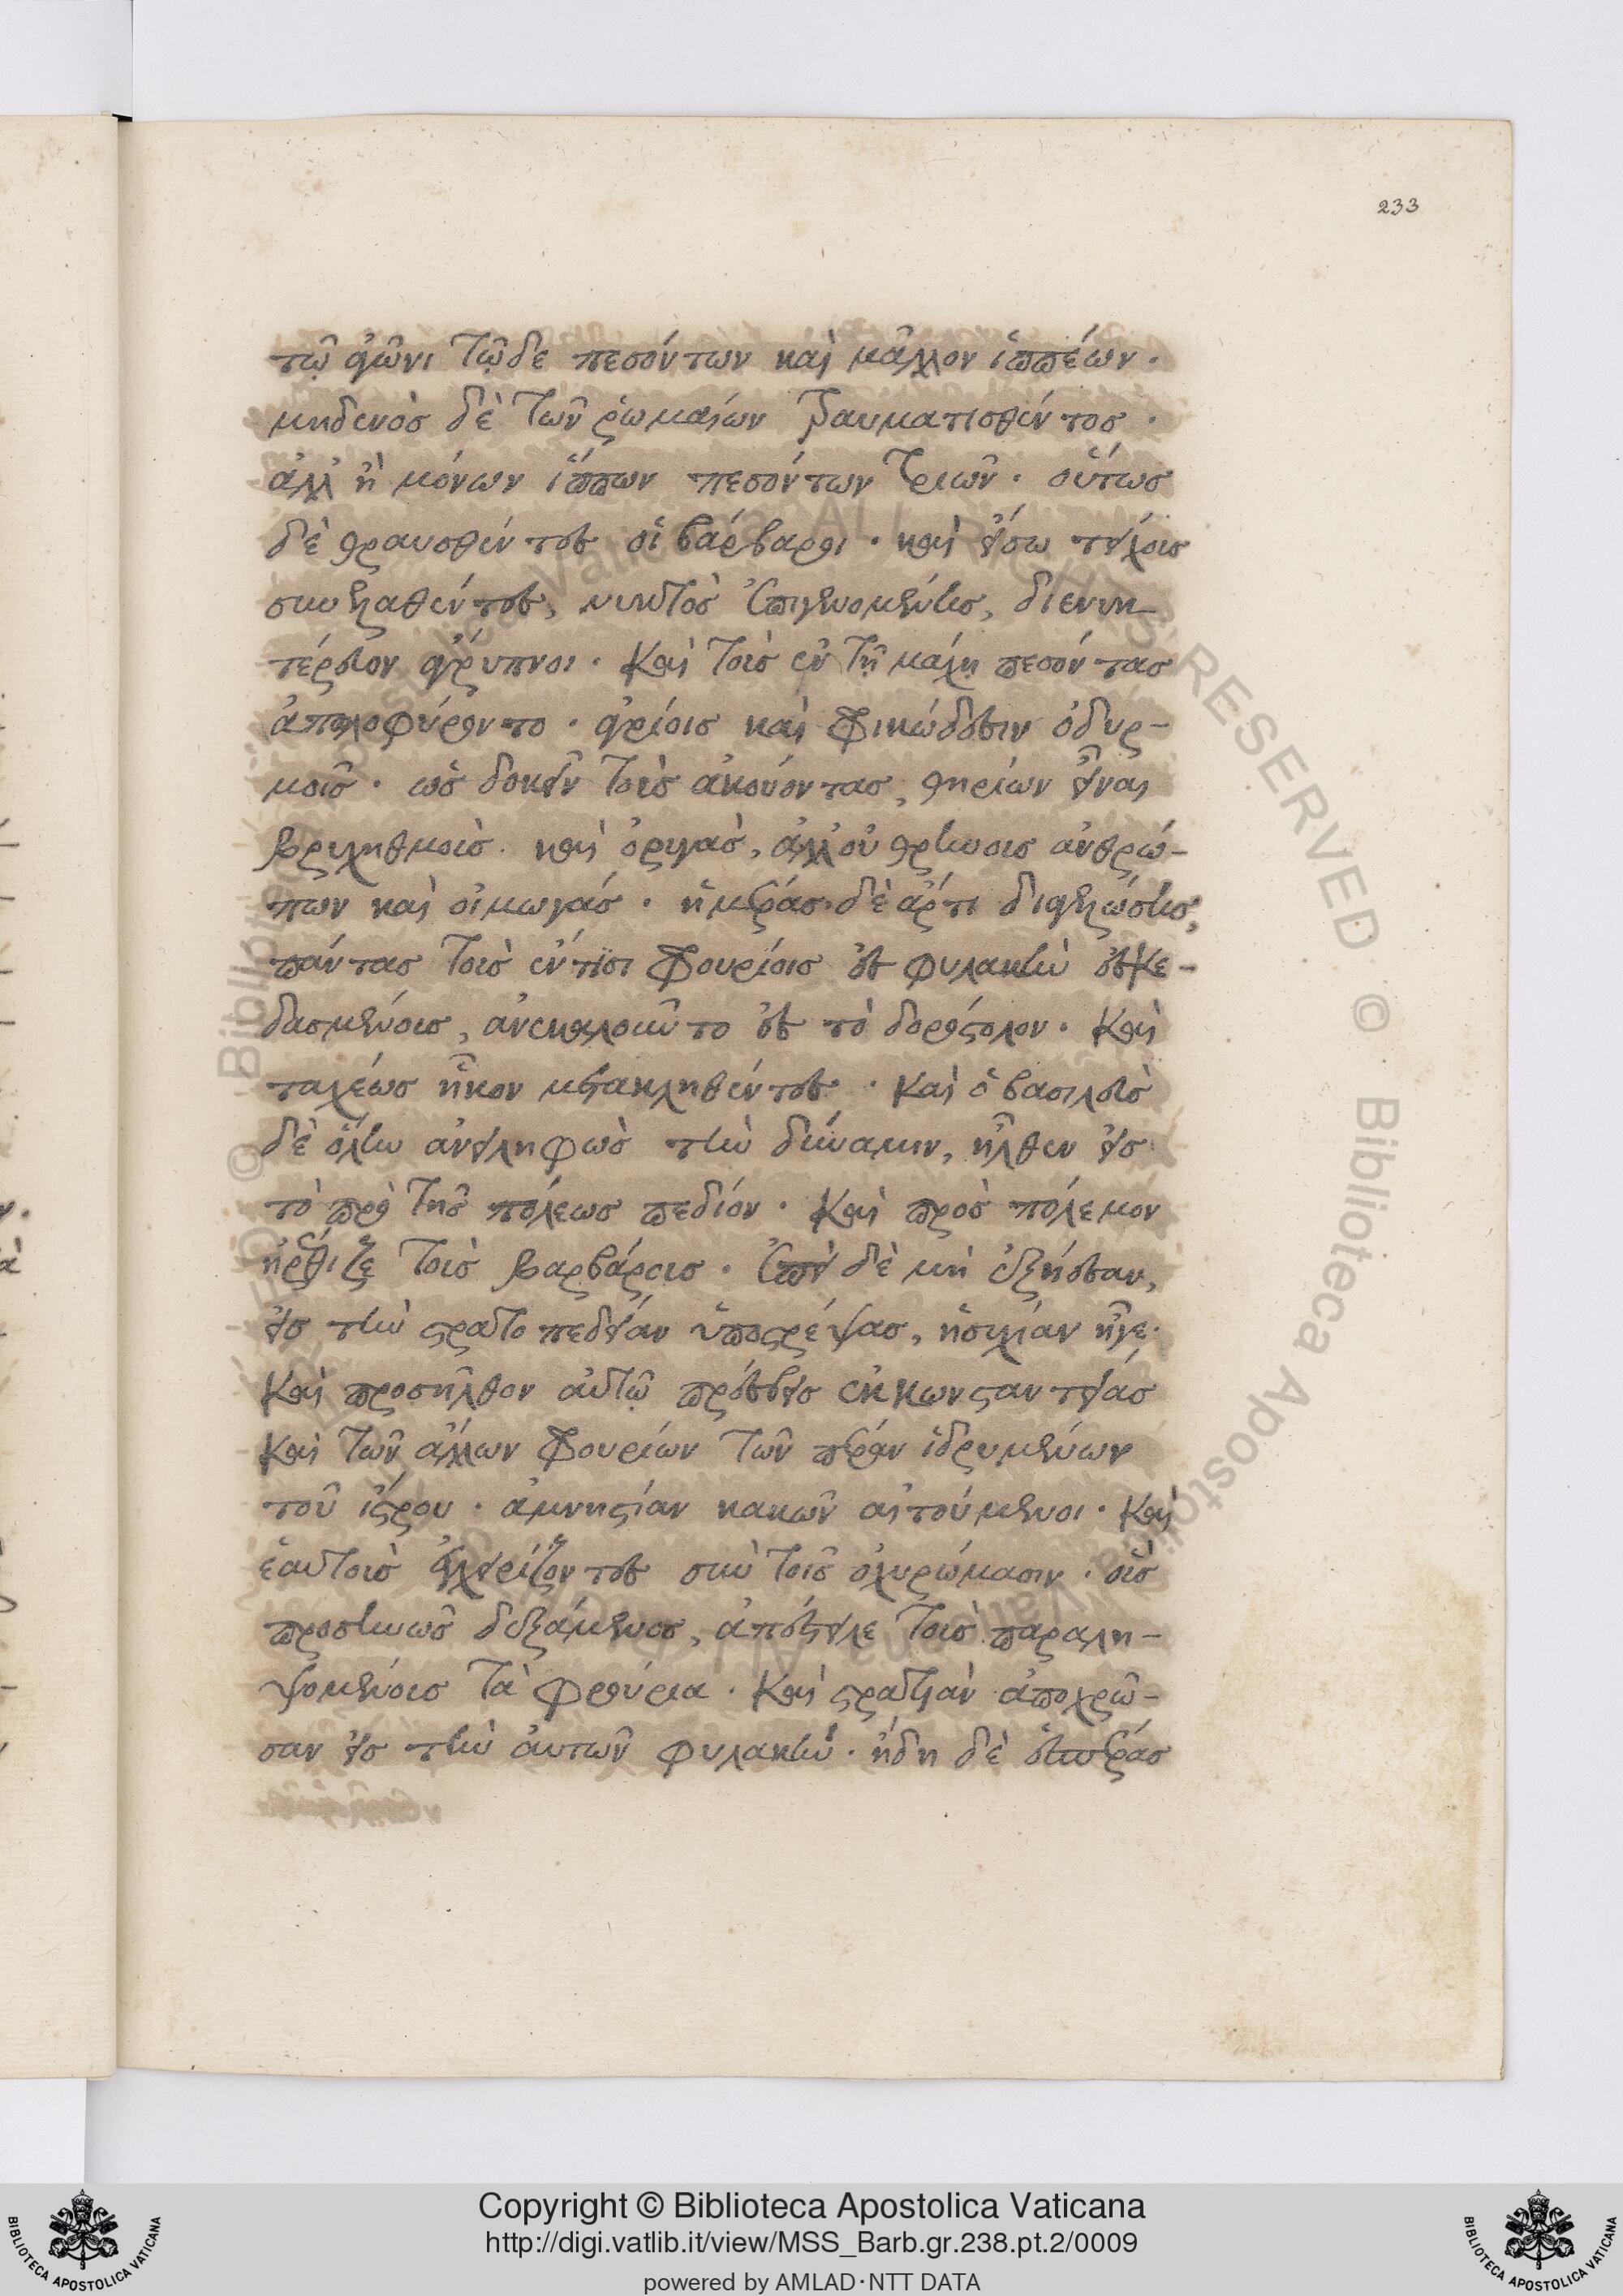 233
τῷ ἀγῶνι τῷδε πεσόντων καὶ μᾶλλον ἱππέων.
μηδενὸς δὲ τῶν ῥωμαίων τραυματισθέντος.
ἀλλ' ἢ μόνων ἵππων πεσόντων τριῶν. οὕτως
δὲ θραυσθέντες οἱ βάρβαροι. καὶ εἴσω τείχους
συνελαθέντες, νυκτὸς ἐπιγενομένης, διενυκ-
τέρευον ἄγρυπνοι. καὶ τοὺς ἐν τῇ μάχῃ πεσόντας
ἀπωλοφύροντο. ἀγρίοις καὶ φρικώδεσιν ὀδυρ-
μοῖς. ὡς δοκεῖν τοὺς ἀκούοντας, θηρίων εἶναι
βρυχηθμοὺς καὶ ὀρυγὰς, ἀλλ' οὐ θρήνους ἀνθρώ-
πων καὶ οἰμωγάς. ἡμέρας δὲ ἄρτι διαγελώσης,
πάντας τοὺς ἔν τισι φρουρίοις ἐς φυλακὴν ἐσκε-
δασμένους, ἀνεκαλοῦντο ἐς τὸ δορόστολον. καὶ
ταχέως ἧκον μετακληθέντες. καὶ ὁ βασιλεὺς
δὲ ὅλην ἀνειληφὼς τὴν δύναμιν, ἦλθεν εἰς
τὸ πρὸ τῆς πόλεως πεδίον. καὶ πρὸς πόλεμον
ἠρέθιζε τοὺς βαρβάρους. ἐπεὶ δὲ μὴ ἐξῄεσαν,
εἰς τὴν στρατοπεδείαν ὑποστρέψας, ἡσυχίαν ἦγε.
καὶ προσῆλθον αὐτῷ πρέσβεις ἐκ κωνσταντείας
καὶ τῶν ἄλλων φρουρίων τῶν πέραν ἱδρυμένων
τοῦ ἴστρου. ἀμνηστίαν κακῶν αἰτούμενοι. καὶ
ἑαυτοὺς ἐγχειρίζοντες σὺν τοῖς ὀχυρώμασιν. οὓς
προσηνῶς δεξάμενος, ἀπέστειλε τοὺς παραλη-
ψομένους τὰ φρούρια. καὶ στρατιὰν ἀποχρῶ-
σαν εἰς τὴν αὐτῶν φυλακήν. ἤδη δὲ ἑσπέρας
Copyright © Biblioteca Apostolica Vaticana
http://digi.vatlib.it/view/MSS_Barb.gr.238.pt.2/0009
powered by AMLAD·NTT DATA